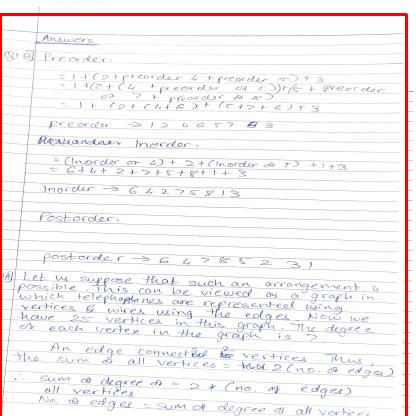 Answers
Preorder.
= 1 + (2 + preorder 4 + preorder 5) + 3
= 1 + (2 + (4 + preorder of + (5 + preorder
of 7 + preorder of 8)
= 1 + (2 + (4 + 6) + (5 + 7 +
preorder → 1 2 4 6 5 7 8 3
Inorder.
= (Inorder of 4) + 2 + (Inorder of 5) + 1 + 3
= 6 + 4 + 2 + 7 + 5 + 8 + 1 + 3
Inorder → 6 4 2 7 5 8 1 3
Postorder.
postorder → 6 4 7 8 5 2 3 1
Let us suppose that such an arrangement is
possible. This can be viewed as a graph in
which telephones are represented using
vertices & wires using the edges. Now we
have 25 vertices in this graph. The degree
of each vertex in the graph is 7.
An edge connected 2 vertices. Thus,
the sum of all vertices = 2 (no. of edges)
∴ sum of degree of = 2 * (no. of edges)
all vertices
No. of edges = sum of degree of all vertices